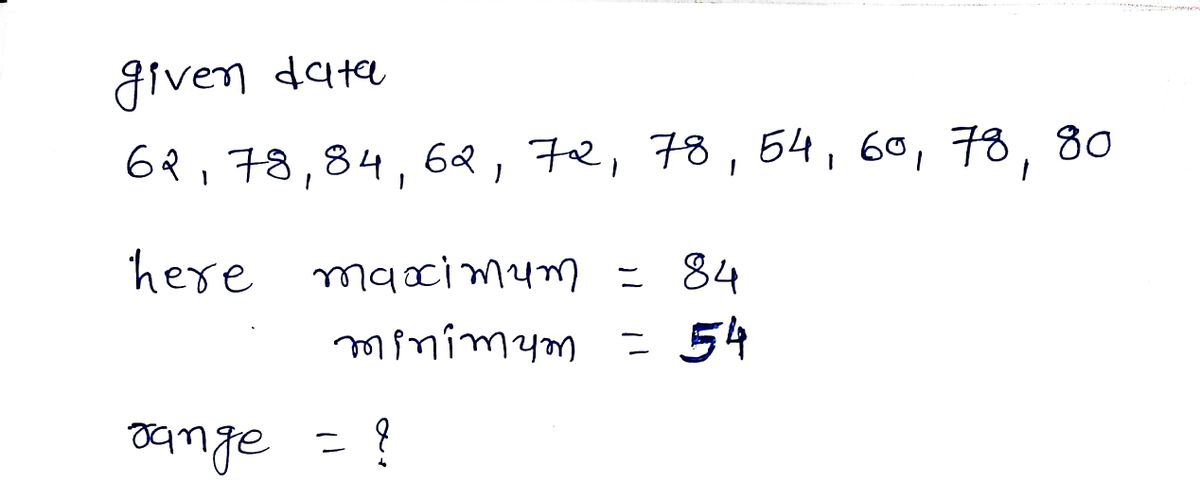 given data
62, 78, 84, 62, 72, 78, 54, 60, 78, 80
here maximum = 84
minimum = 54
range = ?